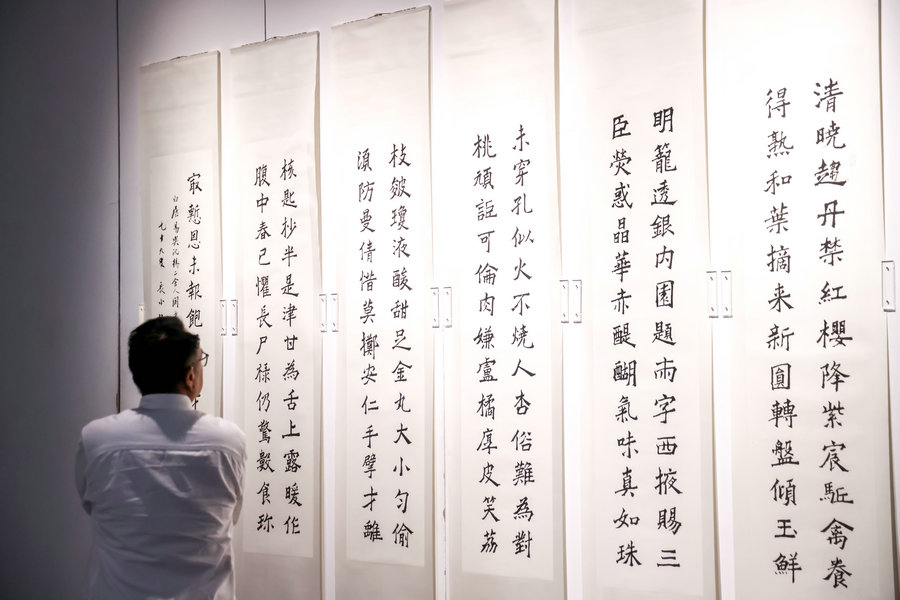 清曉趨丹禁紅櫻降紫宸駈禽養
得熟和葉摘来新圓轉盤傾玉鮮
明籠透銀内園題兩字西掖賜三
臣熒惑晶華赤醍醐氣味真如珠
未穿孔似火不燒人杏俗難為對
桃頑詎可倫肉嫌盧橘厚皮笑荔
枝皴瓊液酸甜足金丸大小匀偷
湏防曼倩惜莫擲安仁手擘才離
核匙抄半是津甘為舌上露暖作
腹中春已懼長尸祿仍驚數食珎
㝡慙恩未報飽